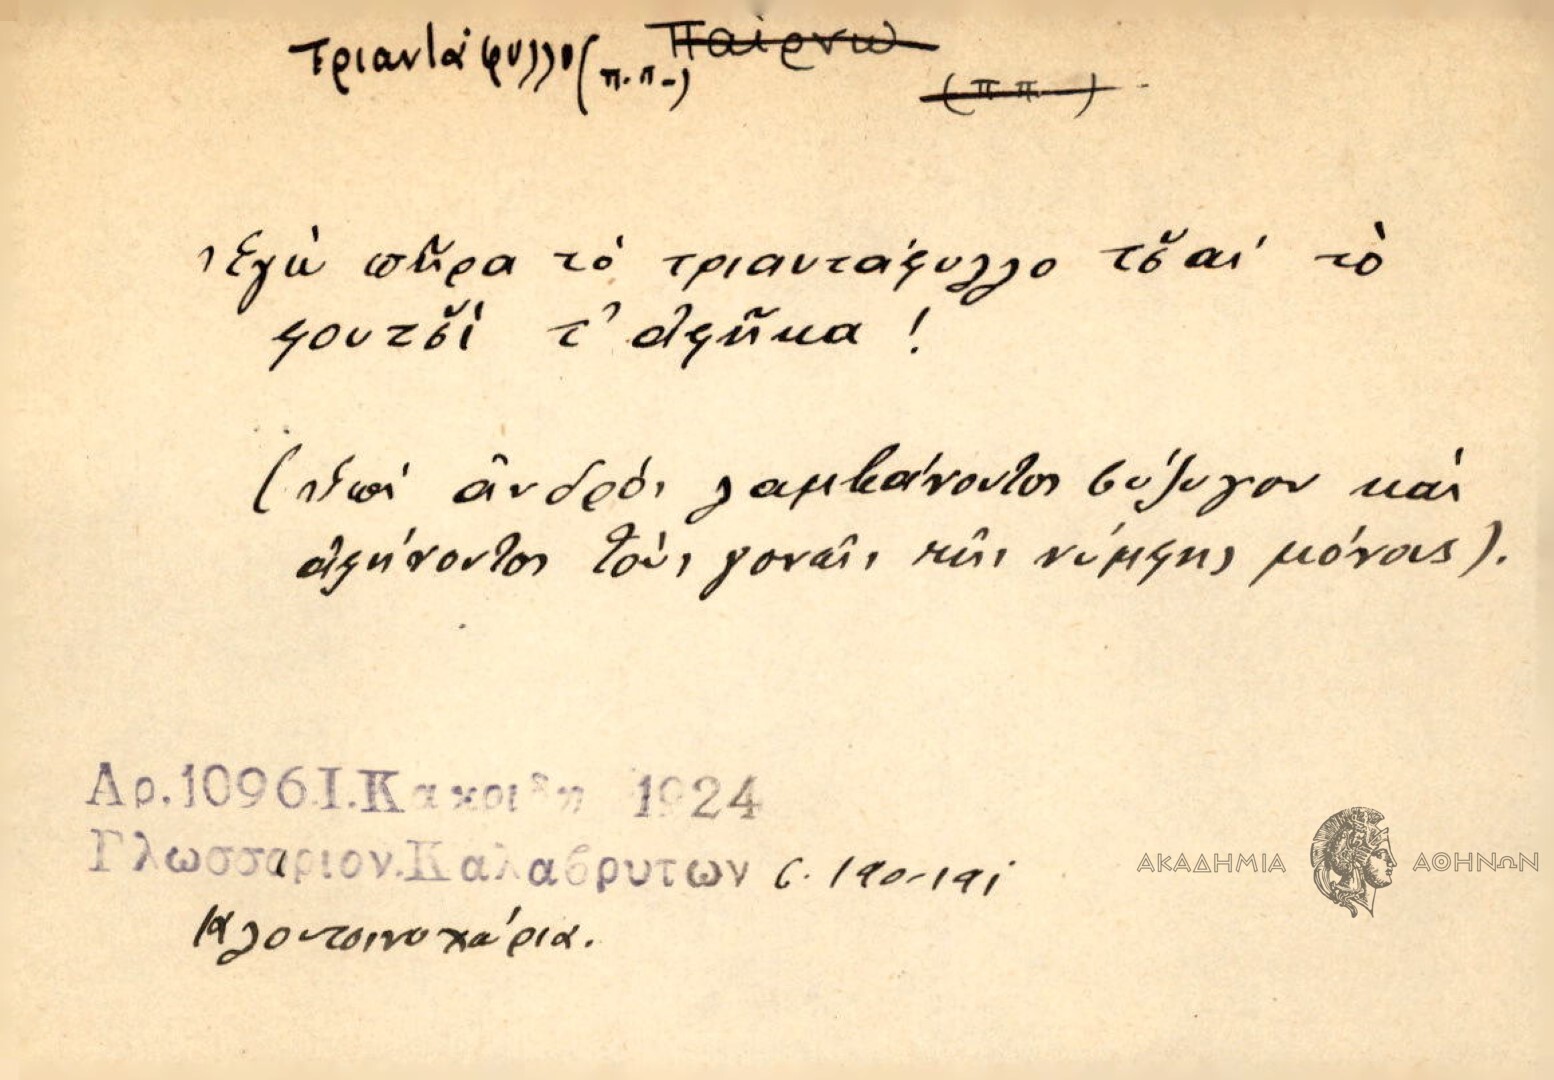 τριαντάφυλλο (π.π.) Παίρνω
(π.π.)
Ἐγὼ πῆρα τό τριαντάφυλλο τσ̌αί τὸ
φουτσ̌ί τ' ἀφῆκα!
(Ἐπί ἀνδρός λαμβάνοντος σύζυγον καί
ἀφήνοντος τούς γονεῖς τῆς νύμφης μόνους).
Αρ.1096 Ι.Κακριδη 1924
Γλωσσαριον.Καλαβρυτων σ. 190-191
ΑΚΑΔΗΜΙΑ ΑΘΗΝΩΝ